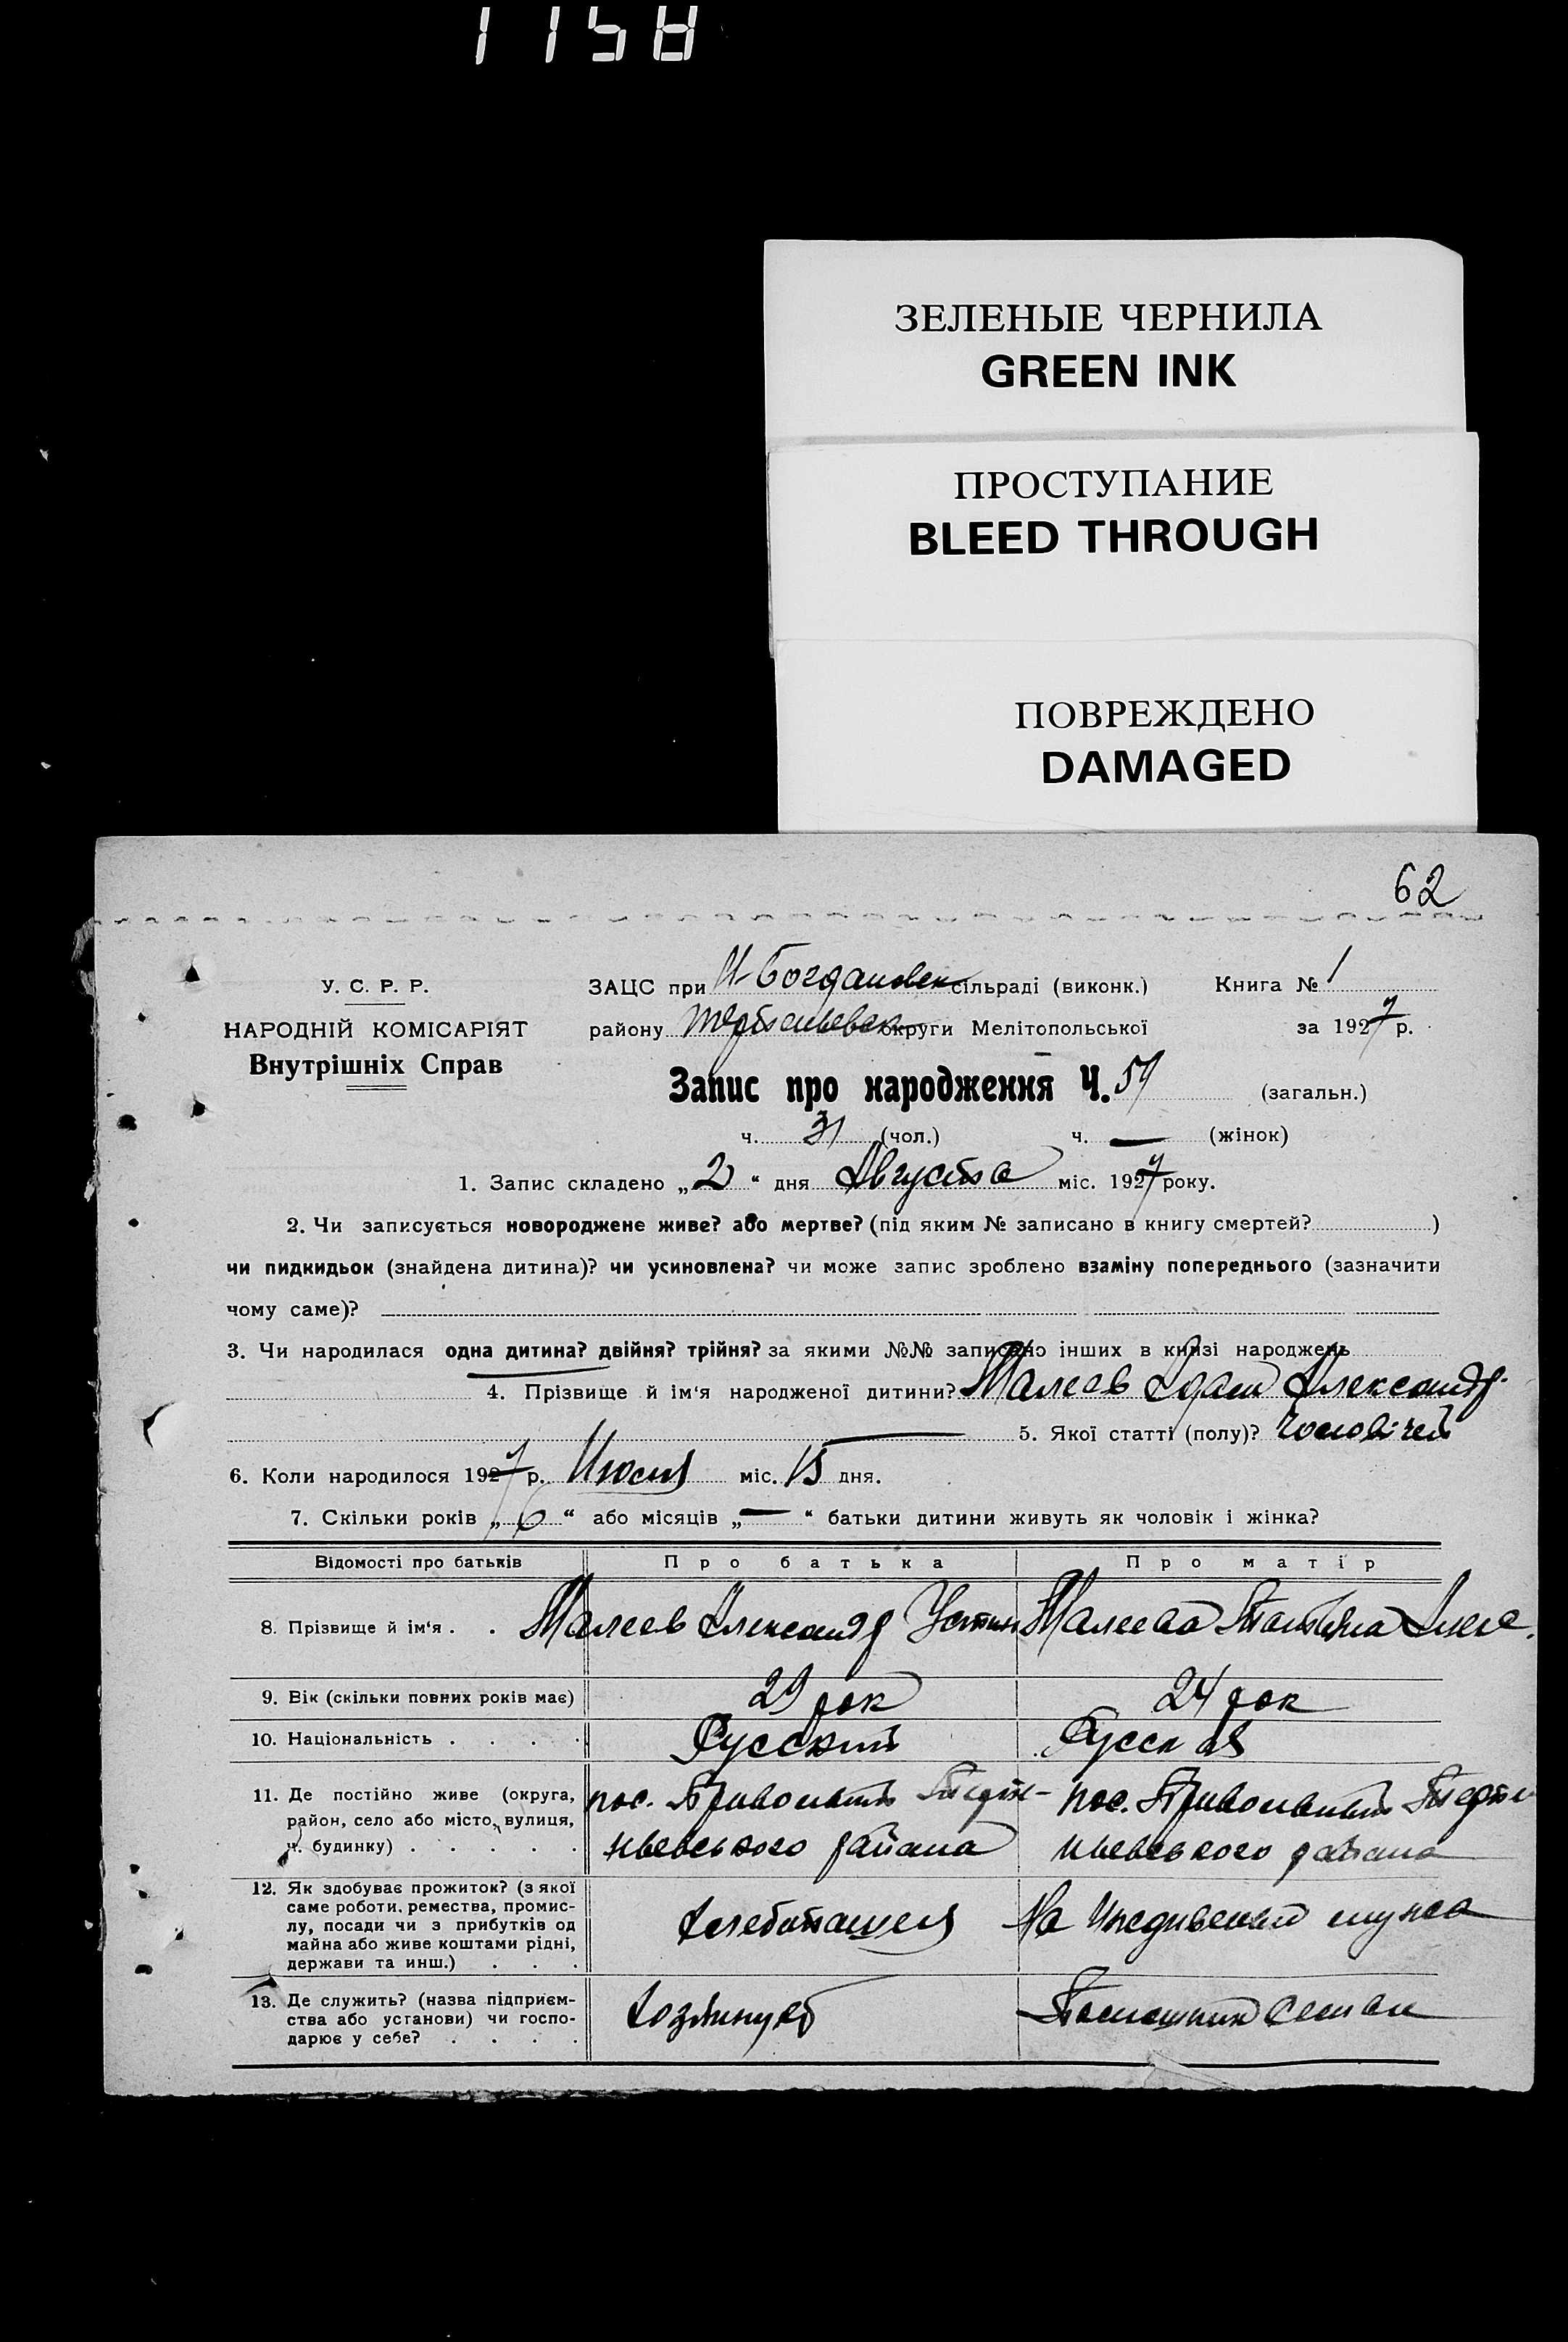 1158
ЗЕЛЕНЫЕ ЧЕРНИЛА
GREEN INK
ПРОСТУПАНИЕ
BLEED THROUGH
ПОВРЕЖДЕНО
DAMAGED
62
У. С. Р. Р.
НАРОДНІЙ КОМІСАРІЯТ
Внутрішніх Справ
ЗАЦС при Н-Богдановск сільраді (виконк.) Книга № 1
району округи Мелітопольської за 1927 р.
Запис про народження Ч. 57 (загальн.)
ч. 31 (чол.) ч. — (жінок)
1. Запис складено „2“ дня Августа міс. 1927 року.
2. Чи записується новороджене живе? або мертве? (під яким № записано в книгу смертей? )
чи пидкидьок (знайдена дитина)? чи усиновлена? чи може запис зроблено взаміну попереднього (зазначити
чому саме)?
3. Чи народилася одна дитина? двійня? трійня? за якими №№ записано інших в книзі народжень
4. Прізвище й ім‘я народженої дитини? Малеев Адам Александр.
5. Якої статті (полу)? Чоловічей
6. Коли народилося 1927 р. міс. 15 дня.
7. Скільки років „6“ або місяців „—“ батьки дитини живуть як чоловік і жінка?
Відомості про батьків Про батька Про матір
8. Прізвище й ім‘я . . Малеев Александр Устин Малеева Татьяна
9. Вік (скільки повних років має) 29 рок 24 рок
10. Національність . . . . Русский Русская
11. Де постійно живе (округа,
район, село або місто, вулиця,
ч. будинку) . . . . .
пос. Привольный
ньевського района
пос. Привольный
ньевського района
12. Як здобуває прожиток? (з якої
саме роботи, ремества, промис-
лу, посади чи з прибутків од
майна або живе коштами рідні,
держави та инш.) . . .
Хлебопашец
На мужа
13. Де служить? (назва підприєм-
ства або установи) чи госпо-
дарює у себе? . . . .